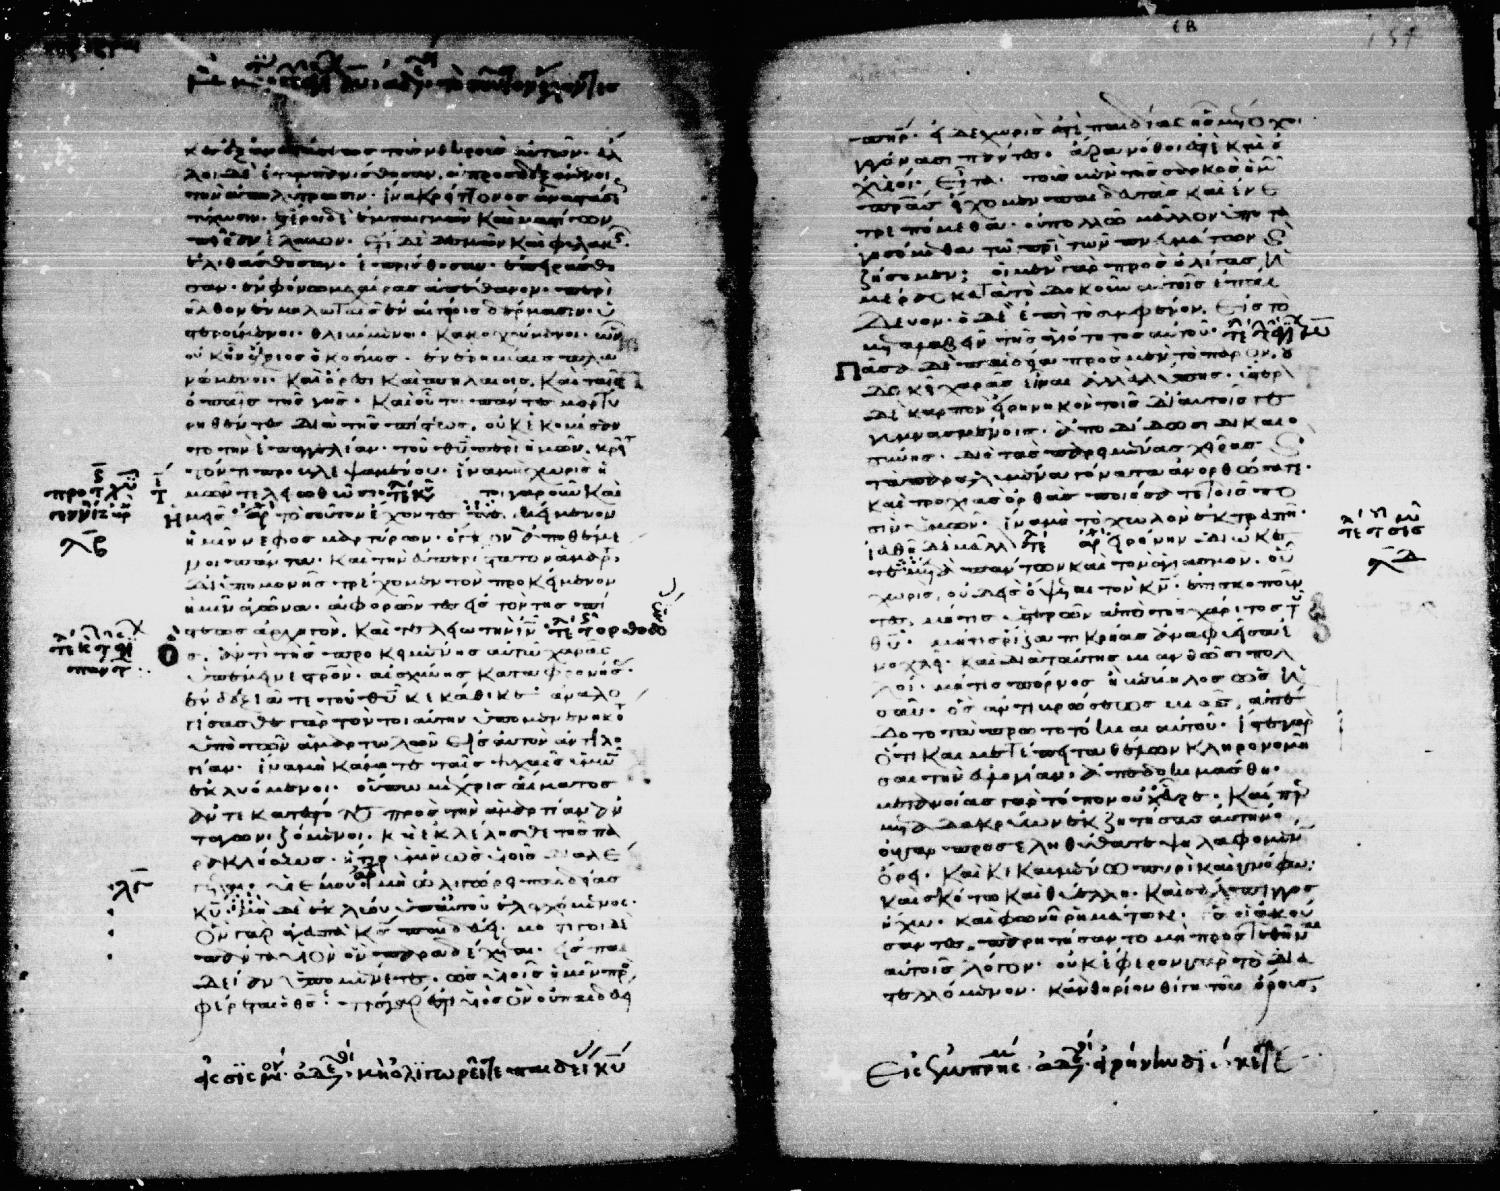 λοι δὲ ἐτυμπανίσθησαν, οὐ προσδεξάμενοι
τὴν ἀπολύτρωσιν· ἵνα κρείττονος ἀναστάσεως
τύχωσιν· ἕτεροι δὲ ἐμπαιγμῶν καὶ μαστίγων
πεῖραν ἔλαβον· ἔτι δὲ δεσμῶν καὶ φυλακῆς·
ἐλιθάσθησαν· ἐπρίσθησαν· ἐπειράσθη
σαν· ἐν φόνω μαχαίρας ἀπέθανον· περι
ῆλθον ἐν μηλωταῖς ἐν αἰγείοις δέρμασιν· ὑ
στερούμενοι· θλιβόμενοι· κακοχούμενοι· ὧν
οὐκ ἦν ἄξιος ὁ κόσμος· ἐν ἐρημίαις πλα
νώμενοι· καὶ ὄρεσι καὶ σπηλαίοις, καὶ ταῖς
ὀπαῖς τῆς γῆς· καὶ οὗτοι πάντες μαρτυ
ρηθέντες διὰ τῆς πίστεως, οὐκ ἐκομίσαν
το τὴν ἐπαγγελίαν· τοῦ θῦ περὶ ἡμῶν, κρεῖτ
τόν τι προβλεψαμένου· ἵνα μὴ χωρὶς ἡ
μῶν τελειωθῶσι· τοιγαροῦν καὶ
ἡμεῖς τοσοῦτον ἔχοντες περικείμενον
ἡμῖν νέφος μαρτύρων· ὄγκον ἀποθέμε
νοι πάντα· καὶ τὴν εὐπερίστατον ἁμαρτίαν
δι ὑπομονῆς τρέχωμεν τὸν προκείμενον
ἡμῖν ἀγῶνα· ἀφορῶντες εἰς τὸν τῆς πί
στεως ἀρχηγὸν, καὶ τελειωτὴν ἰν
ὃς ἀντὶ τῆς προκειμένης αὐτῶ χαρᾶς
ὑπέμεινε σταυρὸν· αἰσχύνης καταφρονήσας·
ἐν δεξιᾶ τε τοῦ θῦ κεκάθικεν· ἀναλο
γίσασθε γὰρ τὸν τοιαύτην ὑπομεμενηκότα
ὑπὸ τῶν ἁμαρτωλῶν εἰς αὐτὸν ἀντιλο
γίαν· ἵνα μὴ κάμητε ταῖς ψυχαῖς ὑμῶν
ἐκλυόμενοι· οὔπω μέχρις αἵματος
ἀντικατέστητε πρὸς τὴν ἁμαρτίαν ἀν
ταγωνιζόμενοι· καὶ ἐκλέλησθε τῆς πα
ρακλήσεως· ἥτις ὑμῖν ὡς υἱοῖς διαλέ
γεται· υἱέ μου μὴ ὀλιγώρει παιδείας
κῦ· μὴ δὲ ἐκλύου ὑπ αὐτοῦ ἐλεγχόμενος·
ὃν γὰρ ἀγαπᾶ κς παιδεύει· μαστιγοῖ δὲ
πάντα υἱὸν ὃν παραδέχεται· εἰς παι
δείαν ὑπομένετε· ὡς υἱοῖς ὑμῖν προσ
φέρεται ὁ θς· τίς γάρ ἐστιν υἱὸς ὃν οὐ παιδεύει
πατήρ· εἰ δὲ χωρὶς ἐστὲ παιδείας ἧς μέτοχοι
γεγόνασι πάντες· ἄρα νόθοι ἐστὲ καὶ οὐ
χ υἱοί· εἶτα τοὺς μὲν τῆς σαρκὸς ἡμῶν
πρας εἴχομεν παιδευτὰς καὶ ἐνε
τρεπόμεθα· οὐ πολλῶ μᾶλλον ὑποτα
γησόμεθα τῶ πρὶ τῶν πνευμάτων καὶ
ζήσομεν; οἱ μὲν γὰρ πρὸς ὀλίγας ἡ
μέρας κατὰ τὸ δοκοῦν αὐτοῖς ἐπαί
δευον· ὁ δὲ ἐπὶ τὸ συμφέρον, εἰς τὸ
μεταλαβεῖν τῆς ἁγιότητος αὐτοῦ·
Πᾶσα δὲ παιδεία πρὸς μὲν τὸ παρὸν, οὐ
δοκεῖ χαρᾶς εἶναι ἀλλὰ λύπης· ὕστερον
δὲ καρπὸν εἰρηνικὸν τοῖς δι αὐτῆς γε
γυμνασμένοις· ἀποδίδωσι δικαιο
σύνης· διὸ τὰς παρειμένας χεῖρας καὶ
τὰ παραλελυμένα γόνατα ἀνορθώσατε·
καὶ τροχιὰς ὀρθὰς ποιήσατε τοῖς πο
σὶν ὑμῶν· ἵνα μὴ τὸ χωλὸν ἐκτραπῆ·
ἰαθῆ δὲ μᾶλλον· εἰρήνην διώκε
τε μετὰ πάντων καὶ τὸν ἁγιασμὸν· οὗ
χωρὶς, οὐδεὶς ὄψεται τὸν κν· ἐπισκοποῦν
τες, μή τις ὑστερῶν ἀπὸ τῆς χάριτος τοῦ
θῦ· μή τις ῥίζα πικρίας ἄνω φύουσα ἐ
νοχλῆ· καὶ διὰ ταύτης μιανθῶσι πολ
λοί· μή τις πόρνος ἢ βέβηλος ὡς ἡ
σαῦ· ὃς ἀντὶ βρώσεως μιᾶς, ἀπέ
δοτο τὰ πρωτοτόκια αὐτοῦ· ἴστε γὰρ
ὅτι καὶ μετέπειτα θέλων κληρονομῆ
σαι τὴν εὐλογίαν, ἀπεδοκιμάσθη·
μετανοίας γὰρ τόπον οὐχ εὗρε· καίπερ
μετὰ δακρύων ἐκζητήσας αὐτήν·
οὐ γὰρ προσεληλύθατε ψηλαφωμένω
ὄρει· καὶ κεκαυμένω πυρὶ καὶ γνόφω·
καὶ σκότω καὶ θυέλλη· καὶ σάλπιγγος
ἤχω· καὶ φωνῆ ῥημάτων· ἧς οἱ ἀκού
σαντες, παρητήσαντο μὴ προστεθῆναι
αὐτοῖς λόγον· οὐκ ἔφερον γὰρ τὸ δια
στελλόμενον· κἂν θηρίον θίγη τοῦ ὄρους,